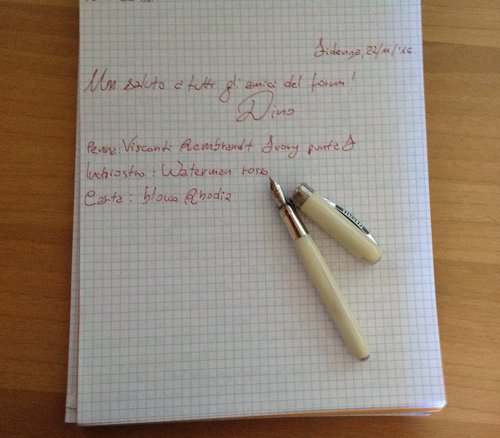 Fidenza, 22/11/'14
Un saluto a tutti gli amici del forum!
Dino
Penna: Visconti Rembrandt Ivory punta F
Inchiostro: Waterman rosso
Carta: blocco Rhodia